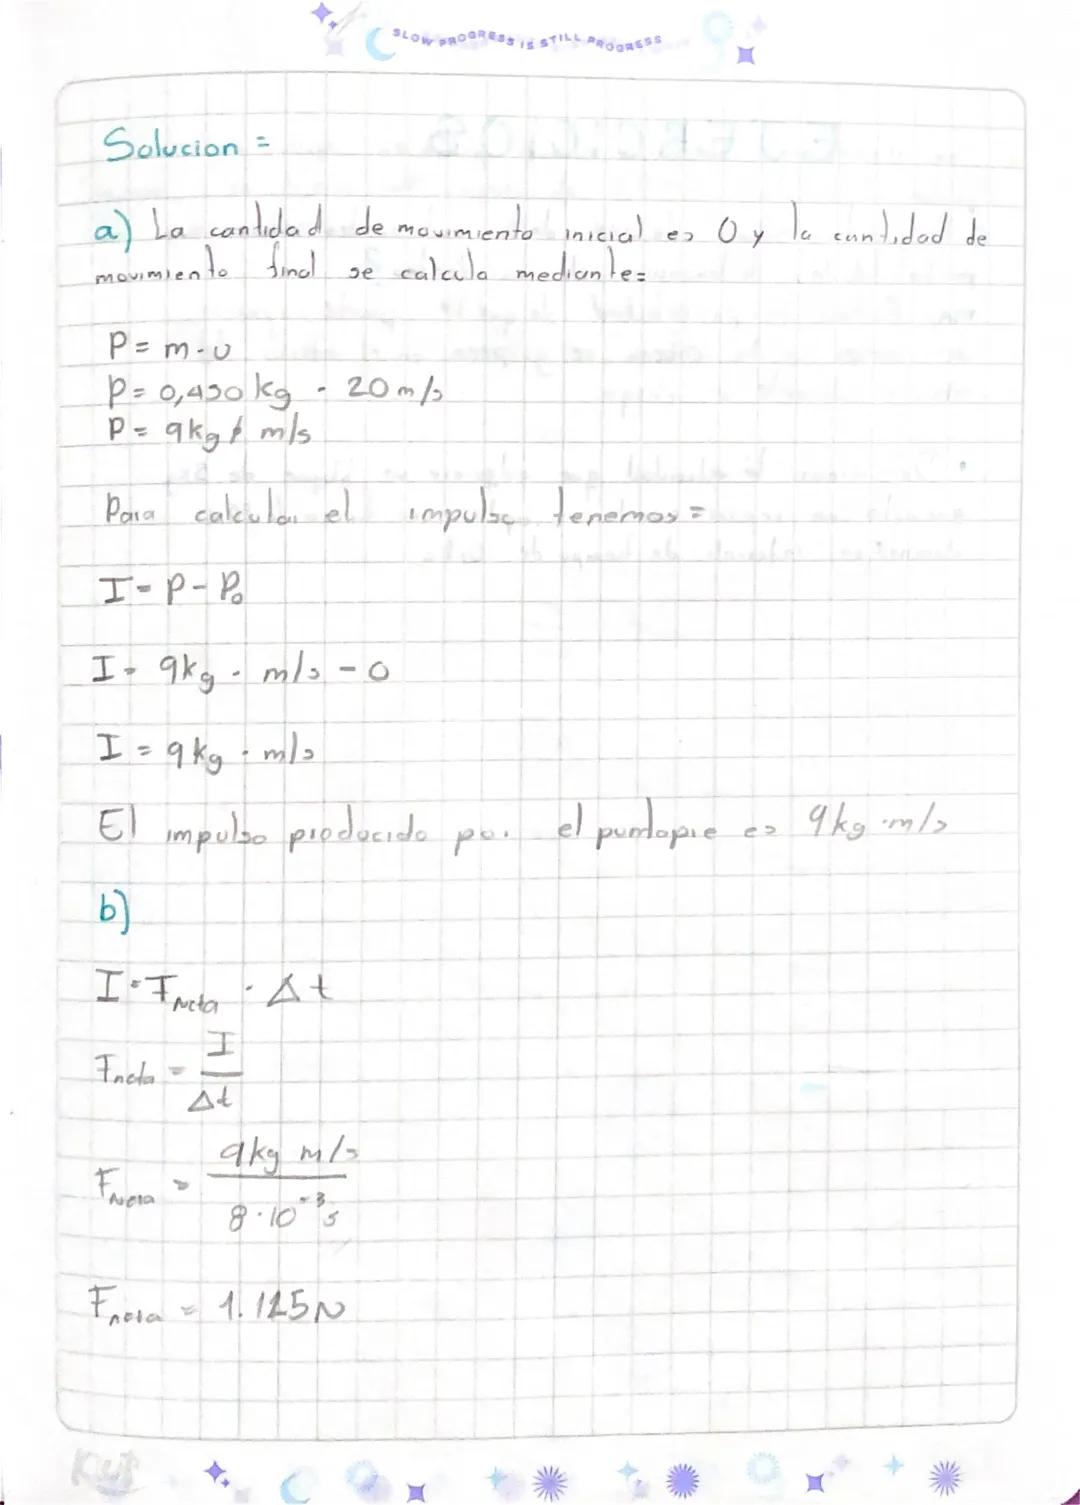 SLOW PROGRESS IS STILL PROGRESS
Solucion =
a) La cantidad de movimiento inicial es 0 y la cantidad de
movimiento final se calcula mediante=
P = m · v
P = 0,450 kg · 20 m/s
P = 9kg m/s
Para calcular el impulso tenemos =
I = P - P₀
I = 9kg · m/s - 0
I = 9 kg · m/s
El impulso producido por el puntapie es 9kg · m/s
b)
I = Fneta · Δt
Fneta = I
Δt
Fneta = 9kg m/s
8 · 10⁻³ s
Fneta = 1.125N